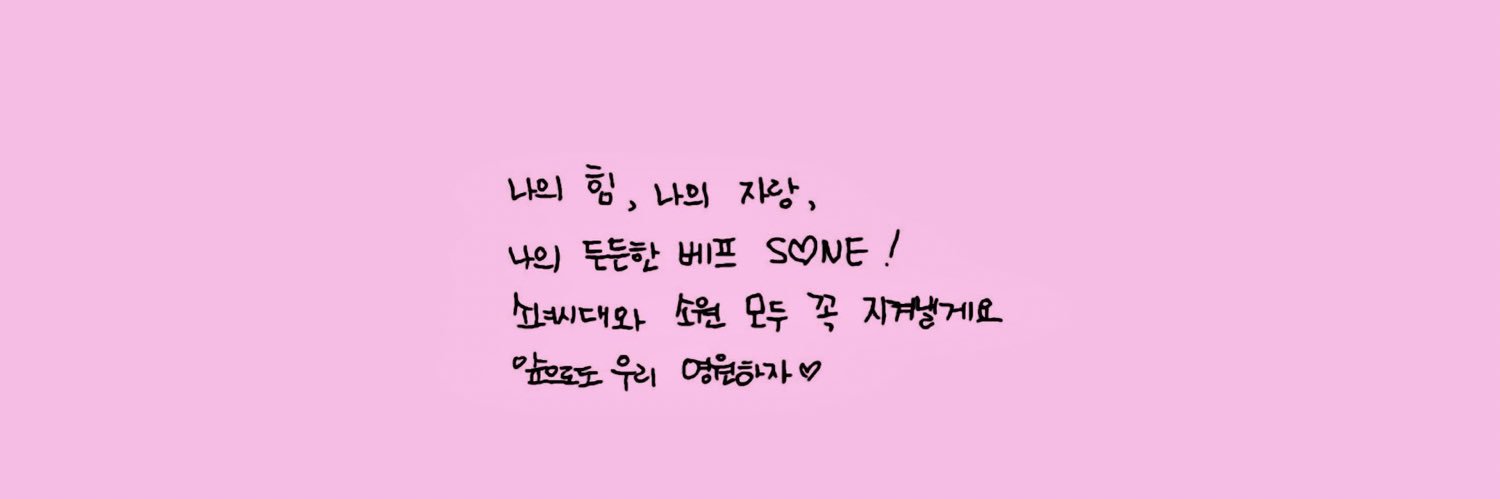 나의 힘, 나의 자랑,
나의 든든한 베프 S♡NE!
소녀시대와 소원 모두 꼭 지켜낼게요
앞으로도 우리 영원하자♡